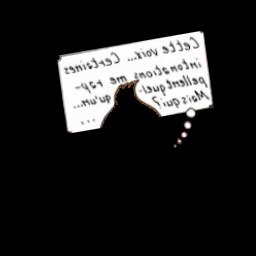 Cette voix... Certaines
intonations me rap-
pellent quel- qu'un...
Mais qui? ...